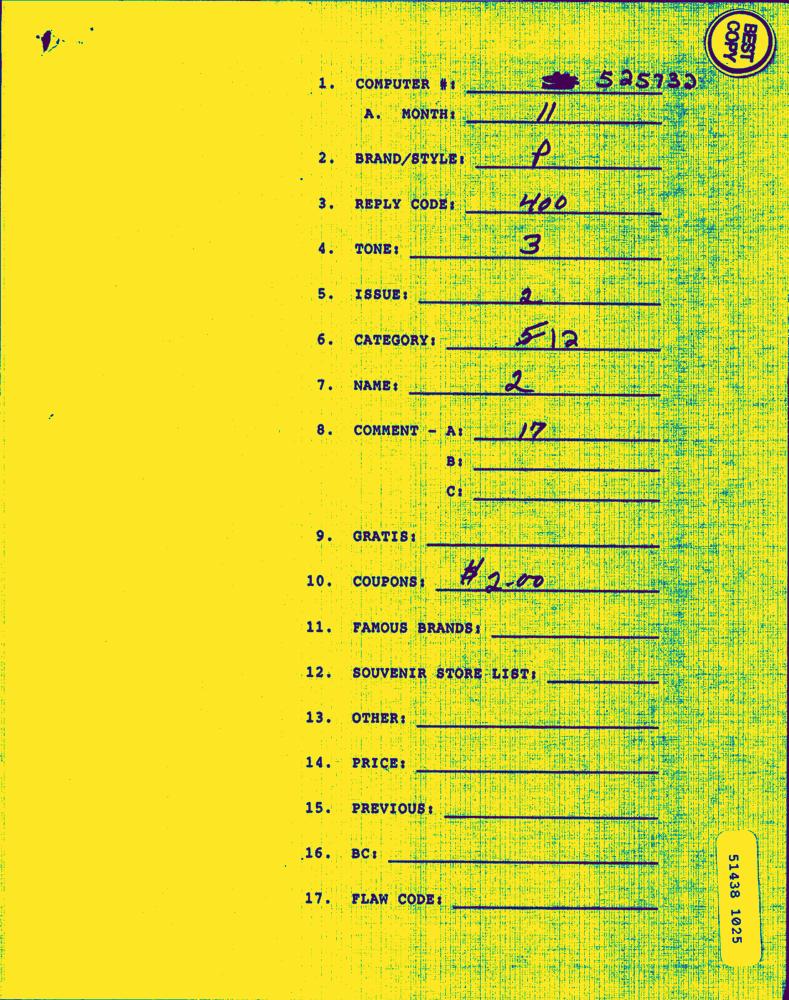 BEST
COPY
1. COMPUTER #: 525732
A. MONTH: 11
2. BRAND/STYLE: P
3. REPLY CODE: 400
4. TONE: 3
5. ISSUE: 2
6. CATEGORY: 512
7. NAME: 2
8. COMMENT - A: 17
B:
C:
9. GRATIS:
10. COUPONS: $ 2.00
11. FAMOUS BRANDS:
12. SOUVENIR STORE LIST:
13. OTHER:
14. PRICE:
15. PREVIOUS:
16. BC:
17. FLAW CODE:
51438 1025